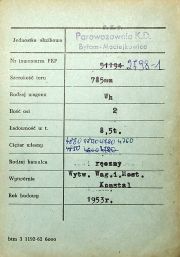 P. K. P.
Jednostka służbowa
Parowozownia K.D.
Bytom-Maciejkowice
Nr inwentarza PKP 51794 2798-1
Szerokość toru 785mm
Rodzaj wagonu Wh
Ilość osi 2
Ładowność w t. 8,5t.
4760
Ciężar własny
Rodzaj hamulca ręczny
Wytwórnia Wytw. Wag.i.Most.
Konstal
Rok budowy 1953r.